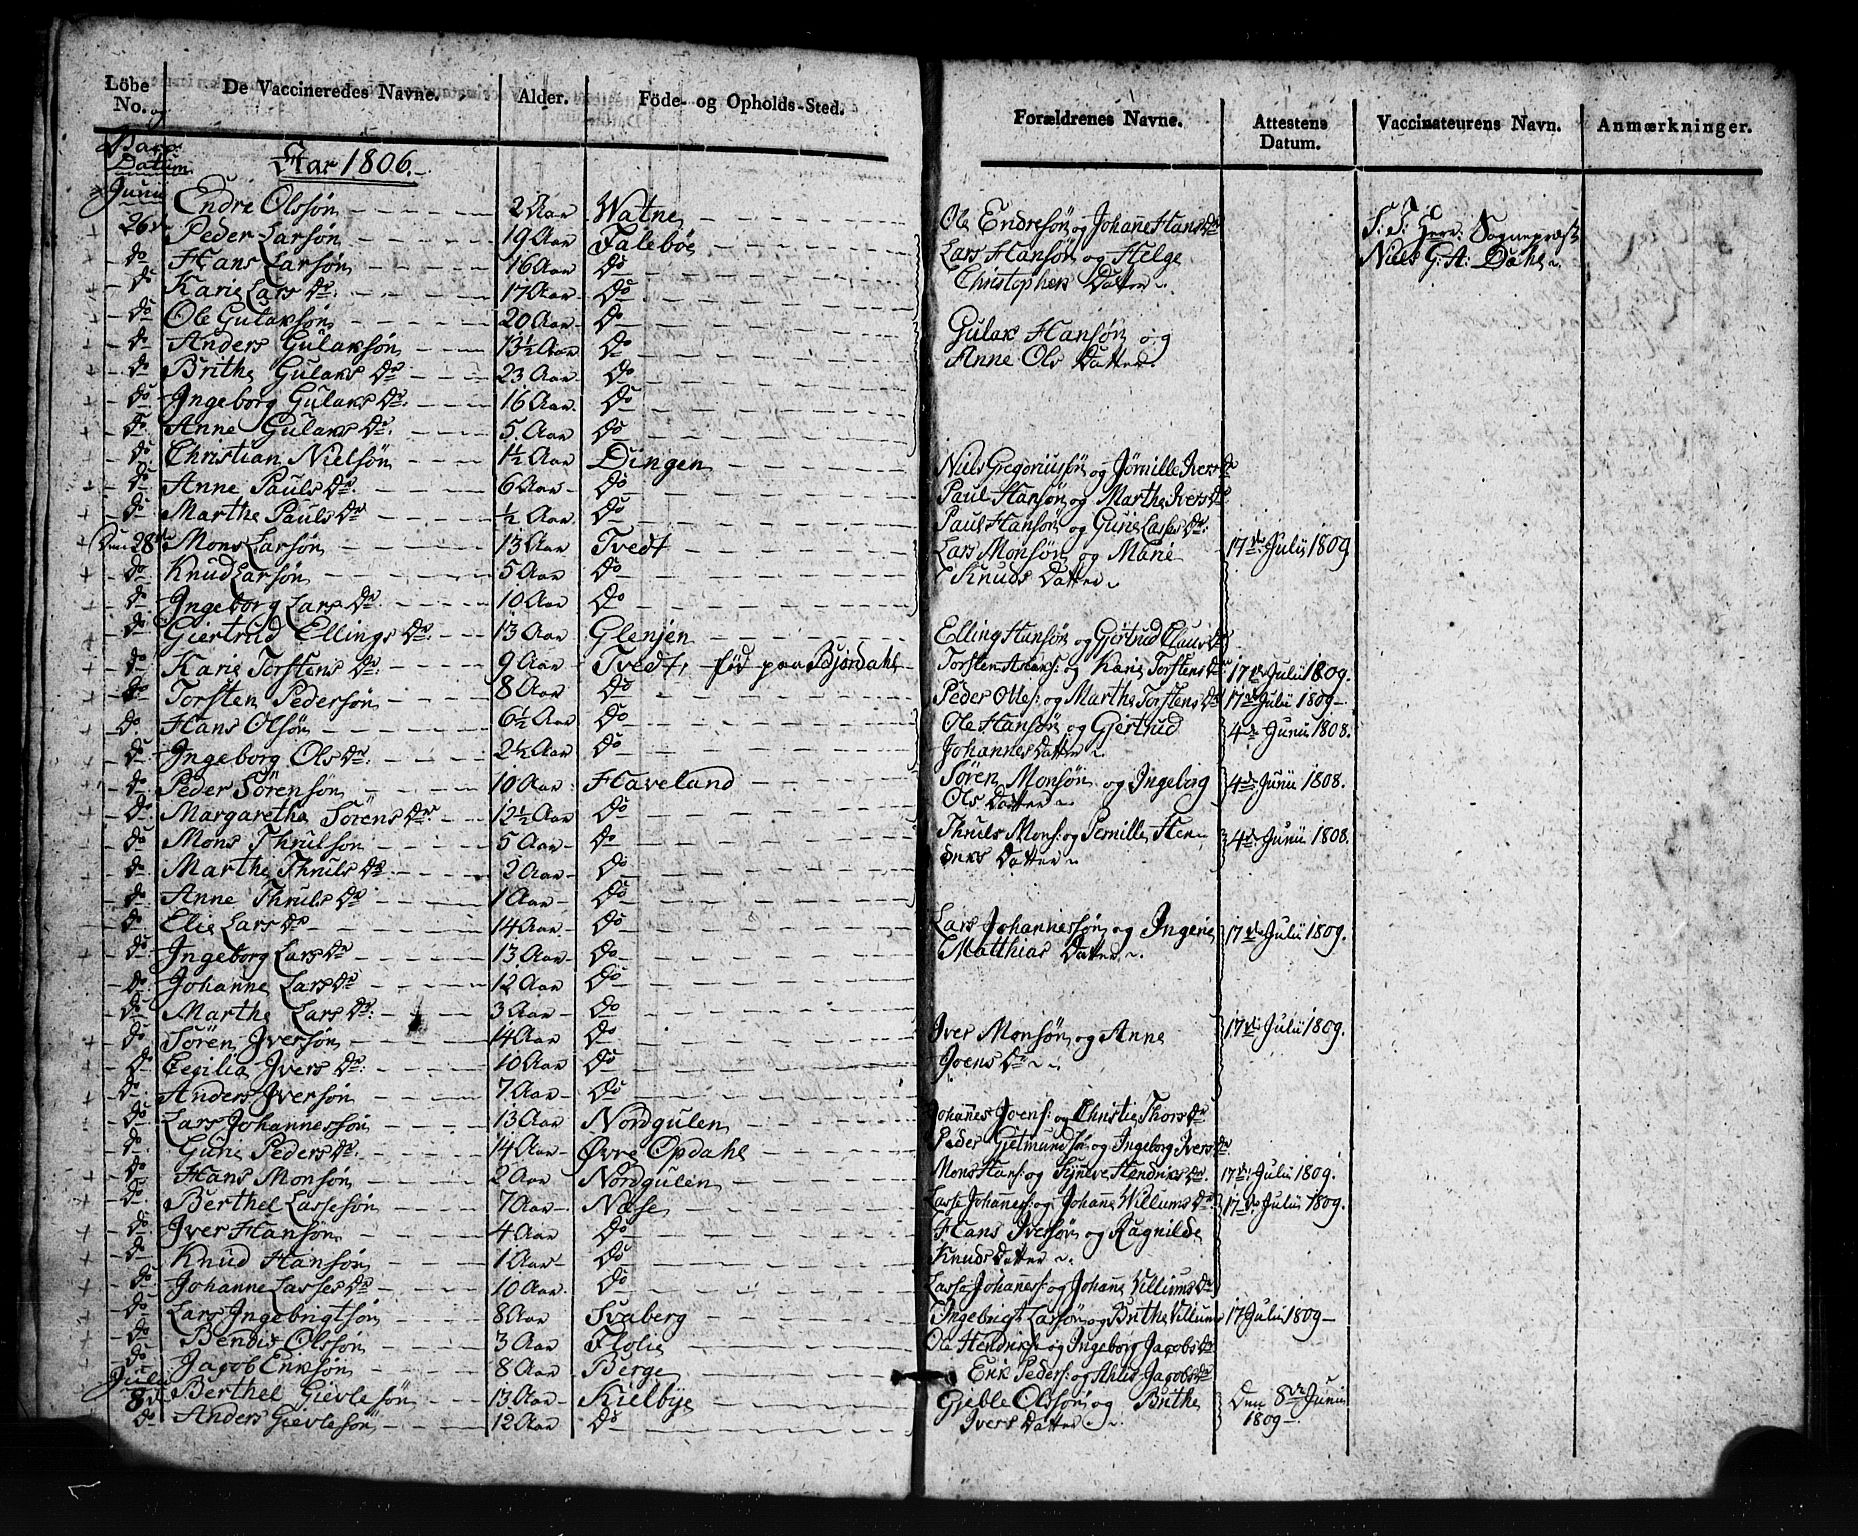 Löbe No. De Vaccineredes Navne. Alder. Föde- og Opholds-Sted. Forældrenes Navne. Attestens Datum. Vaccinateurens Navn. Anmærkninger.
Datum Aar 1806.
Junii Endre Olssøn 2 Aar Watne Ole Endresøn og Johanne Hans Dr
26de Peder Larsøn 19 Aar Talebøe Lars Hansøn og Helge S: T: Herr: Sognepræst
do Hans Larsøn 16 Aar Do Christophers Datter Niels G: A: Dahl
do Karie Lars Dr. 17 Aar Do
do Ole Gulaksøn 20 Aar Do Gulak Hansøn og
do Anders Gulaksøn 13½ Aar Do Anne Ols Datter
do Brithe Gulaks Dr 23 Aar Do
do Ingeborg Gulaks Dr. 16 Aar. Do
do Anne Gulaks Dr. 5 Aar Do
do Christian Nielsøn 1½ Aar Dingen Niels Gregoriussøn og Jørnille Ivers Dr
do Anne Pauls Dr. 6 Aar Do Paul Hansøn og Marthe Ivers Dr
do Marthe Pauls Dr ½ Aar Do Paul Hansøn og Gurie Lasses Dr.
Den 28de Mons Larsøn 13 Aar Tvedt Lars Monsøn og Marie 17de Julii 1809
do Knud Larsøn 5 Aar Do Knuds Datter
do Ingeborg Lars Dr. 10 Aar Do
do Giertrud Ellings Dr. 13 Aar Glenjen Elling Hansøn og Gjertrud Claus Dr
do Karie Torstens Dr. 9 Aar Tvedt, fød paa Bjørdahl Torsten Aslaks: og Karie Torstens Dr 17de Julii 1809.
do Torsten Pedersøn 8 Aar Do Peder Ottes: og Marthe Torstens Dr 17de Julii 1809
do Hans Olsøn 6½ Aar Do Ole Hansøn og Gjertrud 4de Junii 1808.
do Ingeborg Ols Dr. 2½ Aar Do Johannes Datter
do Peder Sørensøn 10 Aar Haveland Søren Monsøn og Ingeborg 4de Junii 1808.
do Margarethe Sørens Dr. 12½ Aar Do Ols Datter
do Mons Thrulsøn 5 Aar Do Thruls Mons: og Pernille Hen- 4de Junii 1808.
do Marthe Thruls Dr 2 Aar Do Datter
do Anne Thruls Dr 1 Aar Do
do Elie Lars Dr 14 Aar Do Lars Johannessøn og Ingerie 17de Julii 1809.
do Ingeborg Lars Dr 13 Aar Do Matthias Datter
do Johanne Lars Dr 12 Aar Do
do Marthe Lars Dr. 3 Aar Do
do Søren Iversøn 14 Aar Do Iver Monsøn og Anne 17de Julii 1809.
do Cecilia Ivers Dr. 10 Aar Do Joens Dr
do Anders Iversøn 7 Aar Do
do Lars Johannessøn 13 Aar Nordgulen Johannes Joens: og Christie Thors Dr
do Gurie Peders Dr. 14 Aar Øvre Opdahl Peder Gjetmundsøn og Ingeborg Ivers Dr
do Hans Monsøn 2 Aar Nordgulen Mons Hans: og Synneve Hendriks Dr. 17de Julii 1809.
do Berthel Lassesøn 7 Aar Næse Lasse Johannes: og Johanne Willums Dr 17de Julii 1809.
do Iver Hansøn 4 Aar Do Hans Iversøn og Ragnilde
do Knud Hansøn 1 Aar Do Knuds Datter
do Johanne Lasses Dr 10 Aar Do Lasse Johannes: og Johanne Villums Dr
do Lars Ingebrigtsøn 8 Aar Svaberg Ingebrigt Larsøn og Brithe Villums 17 Julii 1809
do Bendix Olssøn 3 Aar Flolie Ole Hendriks: og Ingeborg Jacobs Dr
do Jacob Eriksøn 8 Aar Berge Erik Peders: og Ahlis Jacobs Dr
Julii
8de Berthel Gievlesøn 13 Aar Kielbye Gieble Olssøn og Brithe Den 8de Junii
do Anders Gievlesøn 12 Aar Do Ivers Datter 1809